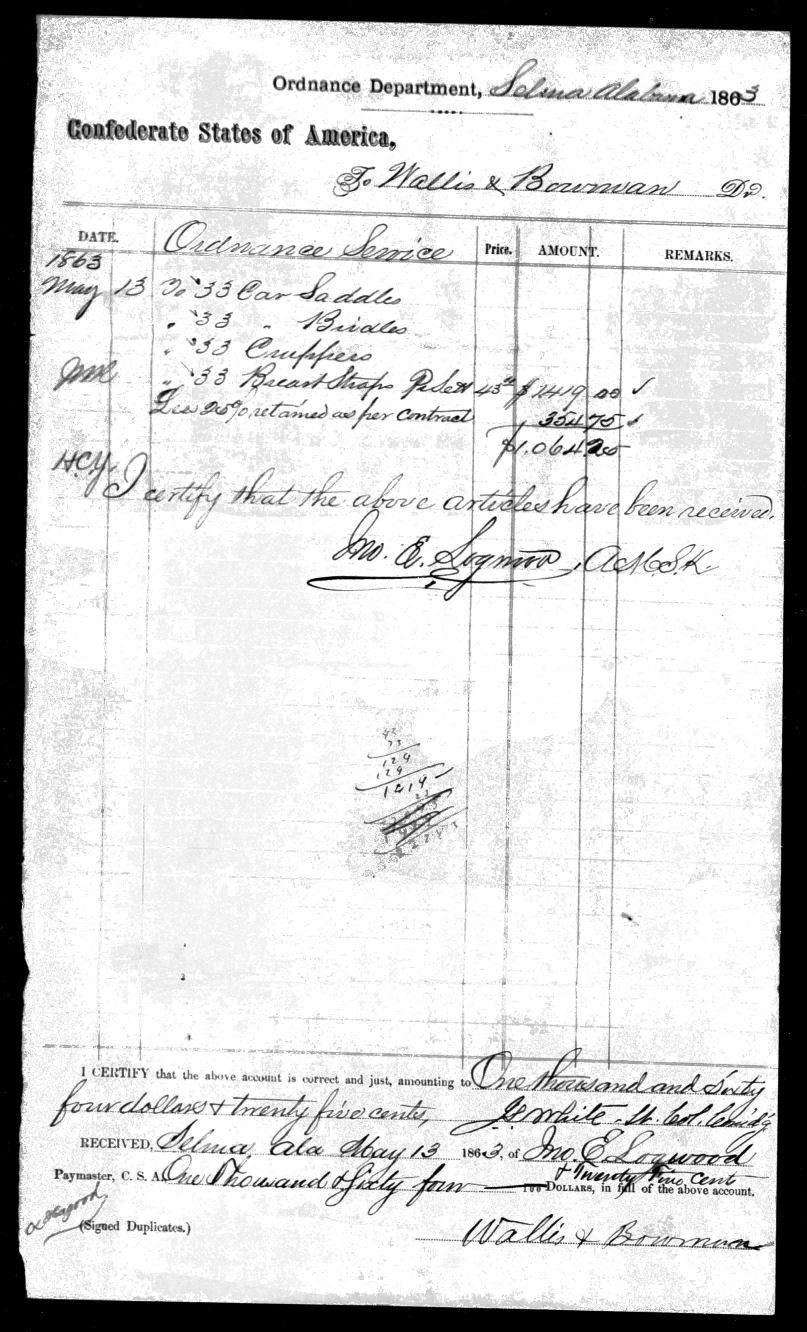 Ordnance Department, Selma Alabama 1863
Confederate States of America,
To Wallis & Bowman Dr.
DATE. Ordnance Service Price. AMOUNT. REMARKS.
1863
May 13 To 33 Car Saddles
" 33 " Bridles
" 33 Cruppers
" 33 Breast Straps Pr Sett 43 $ 1419 00 ✓
Less 25% retained as per contract 354 75 ✓
$1.064 25
I certify that the above articles have been received.
Jno. E. Logwood, A.M.S.K.
43
33
129
129
1419
I CERTIFY that the above account is correct and just, amounting to One thousand and Sixty
four dollars & twenty five cents, White Lt Col Comd'g
RECEIVED, Selma, Ala May 13 1863, of Jno. E. Logwood
& Twenty Five Cent
Paymaster, C. S. A. One Thousand & Sixty four 100 DOLLARS, in full of the above account.
(Signed Duplicates.)
Wallis & Bowman